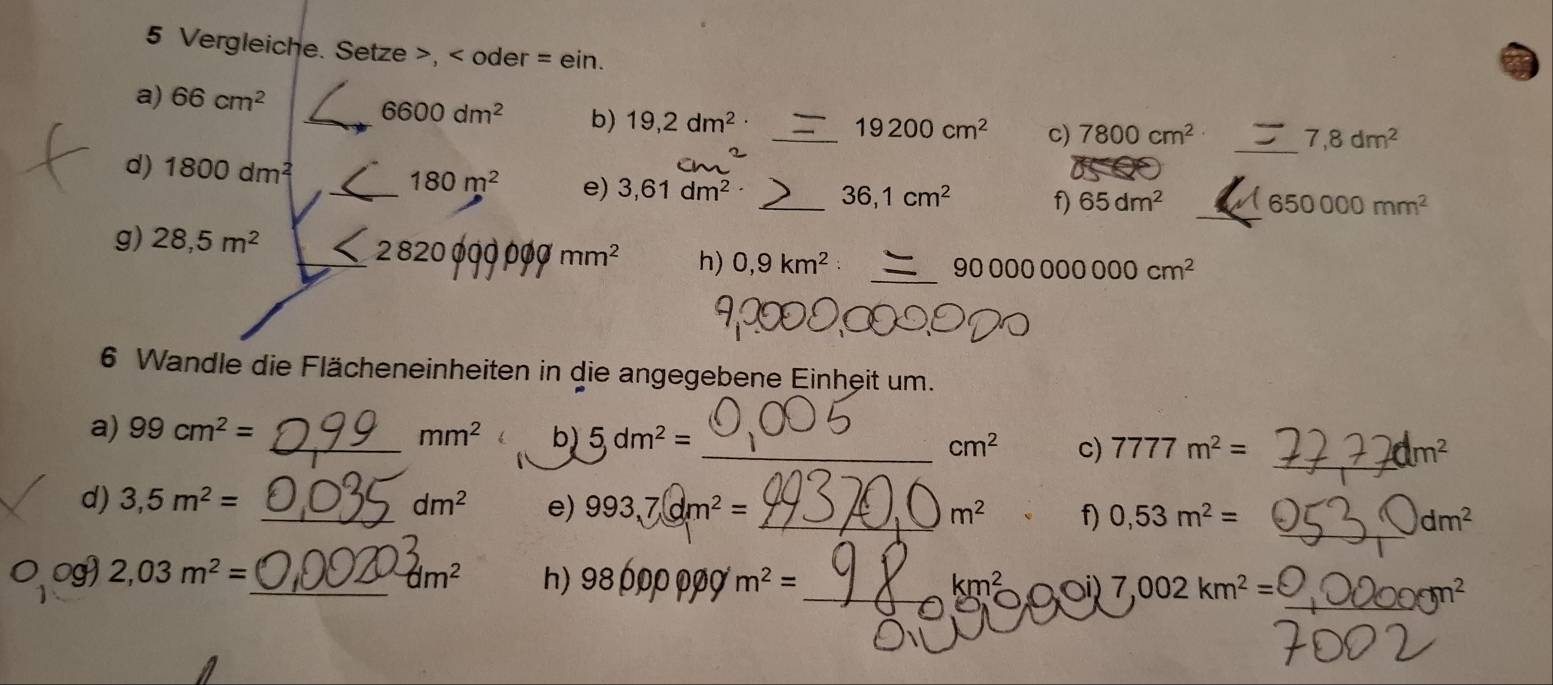 5 Vergleiche. Setze >, < oder = ein.
a) 66 cm² < 6600 dm² b) 19,2 dm² = 19 200 cm² c) 7800 cm² = 7,8 dm²
cm²
d) 1800 dm² < 180 m² e) 3,61 dm² > 36,1 cm² f) 65 dm² < 650 000 mm²
g) 28,5 m² < 2 820 000 000 mm² h) 0,9 km² = 90 000 000 000 cm²
6 Wandle die Flächeneinheiten in die angegebene Einheit um.
a) 99 cm² = 0,99 mm² b) 5 dm² = 0,005 cm² c) 7777 m² = 77,77 dm²
d) 3,5 m² = 0,035 dm² e) 993,7 dm² = 99370,0 m² f) 0,53 m² = 053,0 dm²
g) 2,03 m² = 0,00203 dm² h) 98 000 000 m² = 98 km² i) 7,002 km² = 0,00000 m²
7002